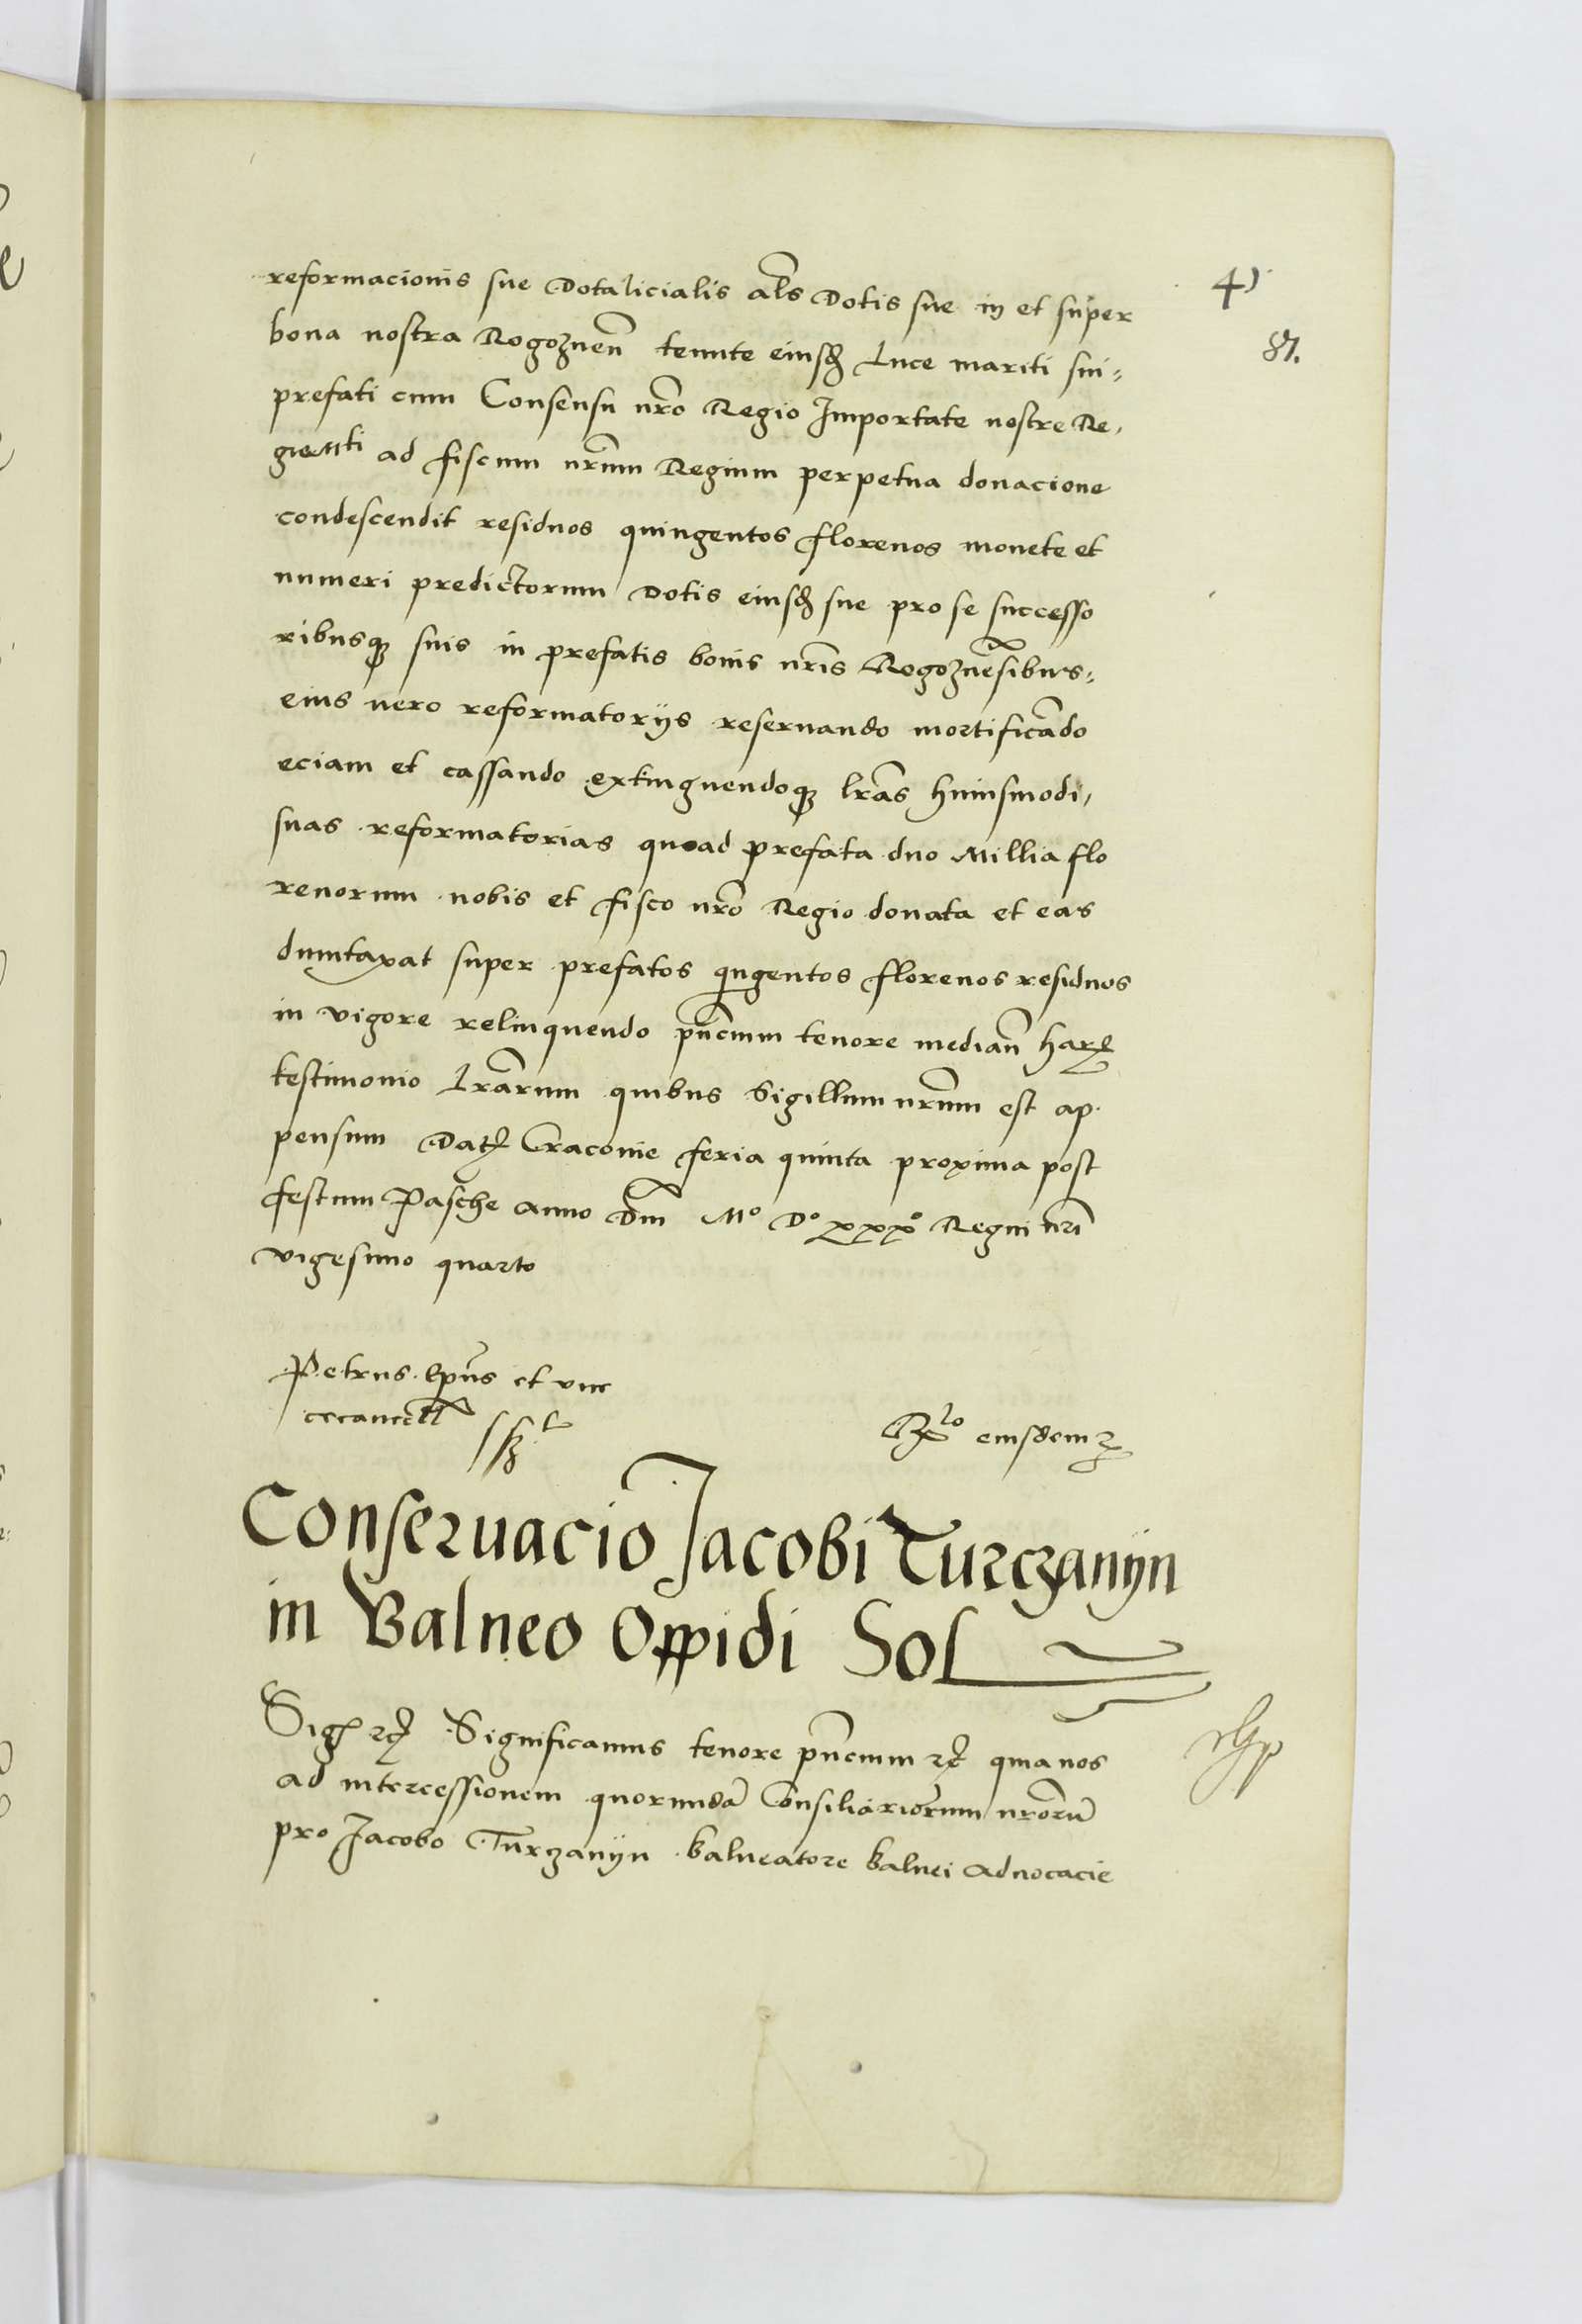 reformacionis sue Dotalicialis als Dotis sue in et super
41
bona nostra Rogoznen tenute eiusd Luce mariti sui
87.
prefati cum Consensu nro Regio Importate nostre Re
gie Mti ad fiscum nrum Regium perpetua donacione
condescendit residuos quingentos florenos monete et
numeri predictorum Dotis eiusd sue pro se successo
ribusq suis in prefatis bonis nris Rogoznesibus
eius vero reformatoriis reservando mortificado
eciam et cassando extinguendoq lras huiusmodi
suas reformatorias quoad prefata duo Millia flo
renorum nobis et fisco nro Regio donata et eas
dumtaxat super prefatos qingentos florenos residuos
in vigore relinquendo pncium tenore median har
testimonio lrarum quibus Sigillum nrum est ap
pensum Dat Cracovie feria quinta proxima post
festum Pasche anno Dm Mo Do xxxo Regni nri
vigesimo quarto
Petrus Epus et vic
cecancell sst
Rlo eiusdem
Conservacio Jacobi Turczanyn
in Balneo Oppidi Sol
Sig rc Significamus tenore pncium rc quia nos
ad intercessionem quorunda Consiliariorum nroru
pro Jacobo Turzanyn balneatore balnei advocacie